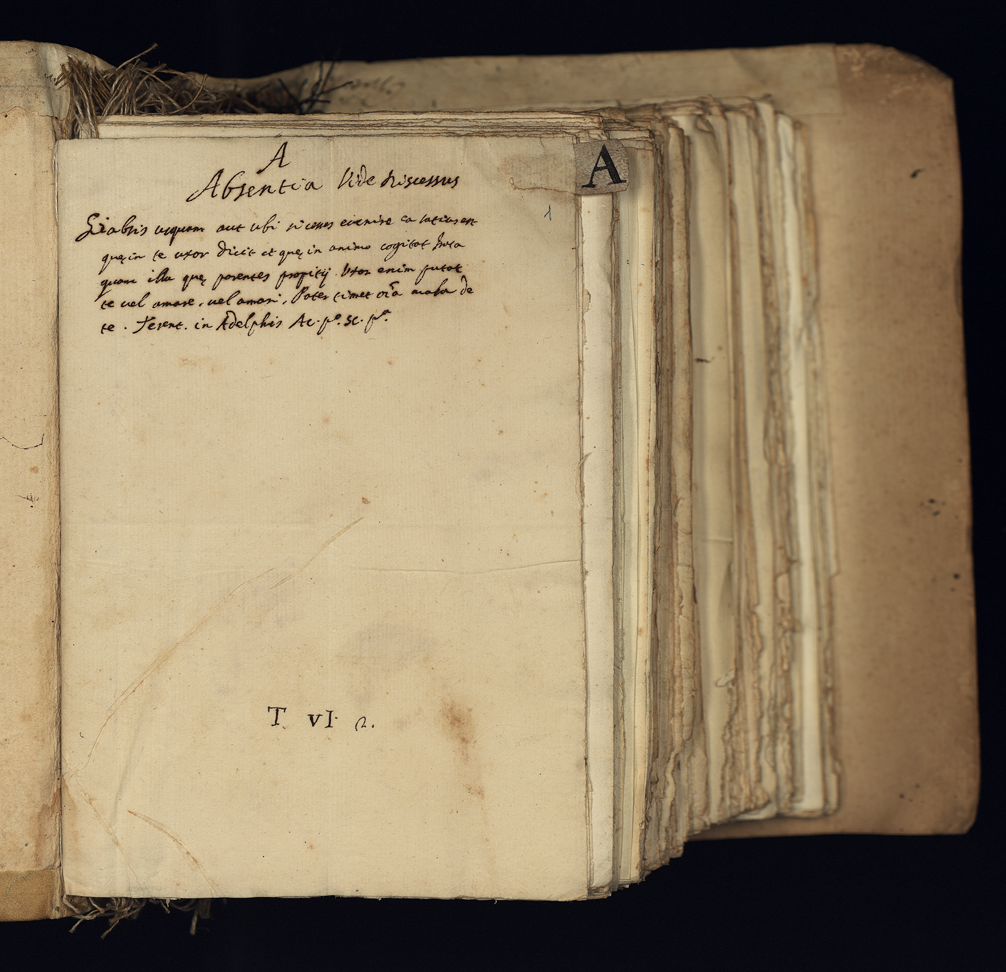 A
A
Absentia Vide discessus
1
Si absis usquam aut ubi si cesses evenire ea satius est
quę in te uxor dicit et quę in animo cogitat irata
quam illa quę parentes propitij. Uxor enim putat
te vel amare, vel amari, Pater timet oīa mala de
te. Terent. in Adelphis Ac. pº. sc. pª.
T VI 2.